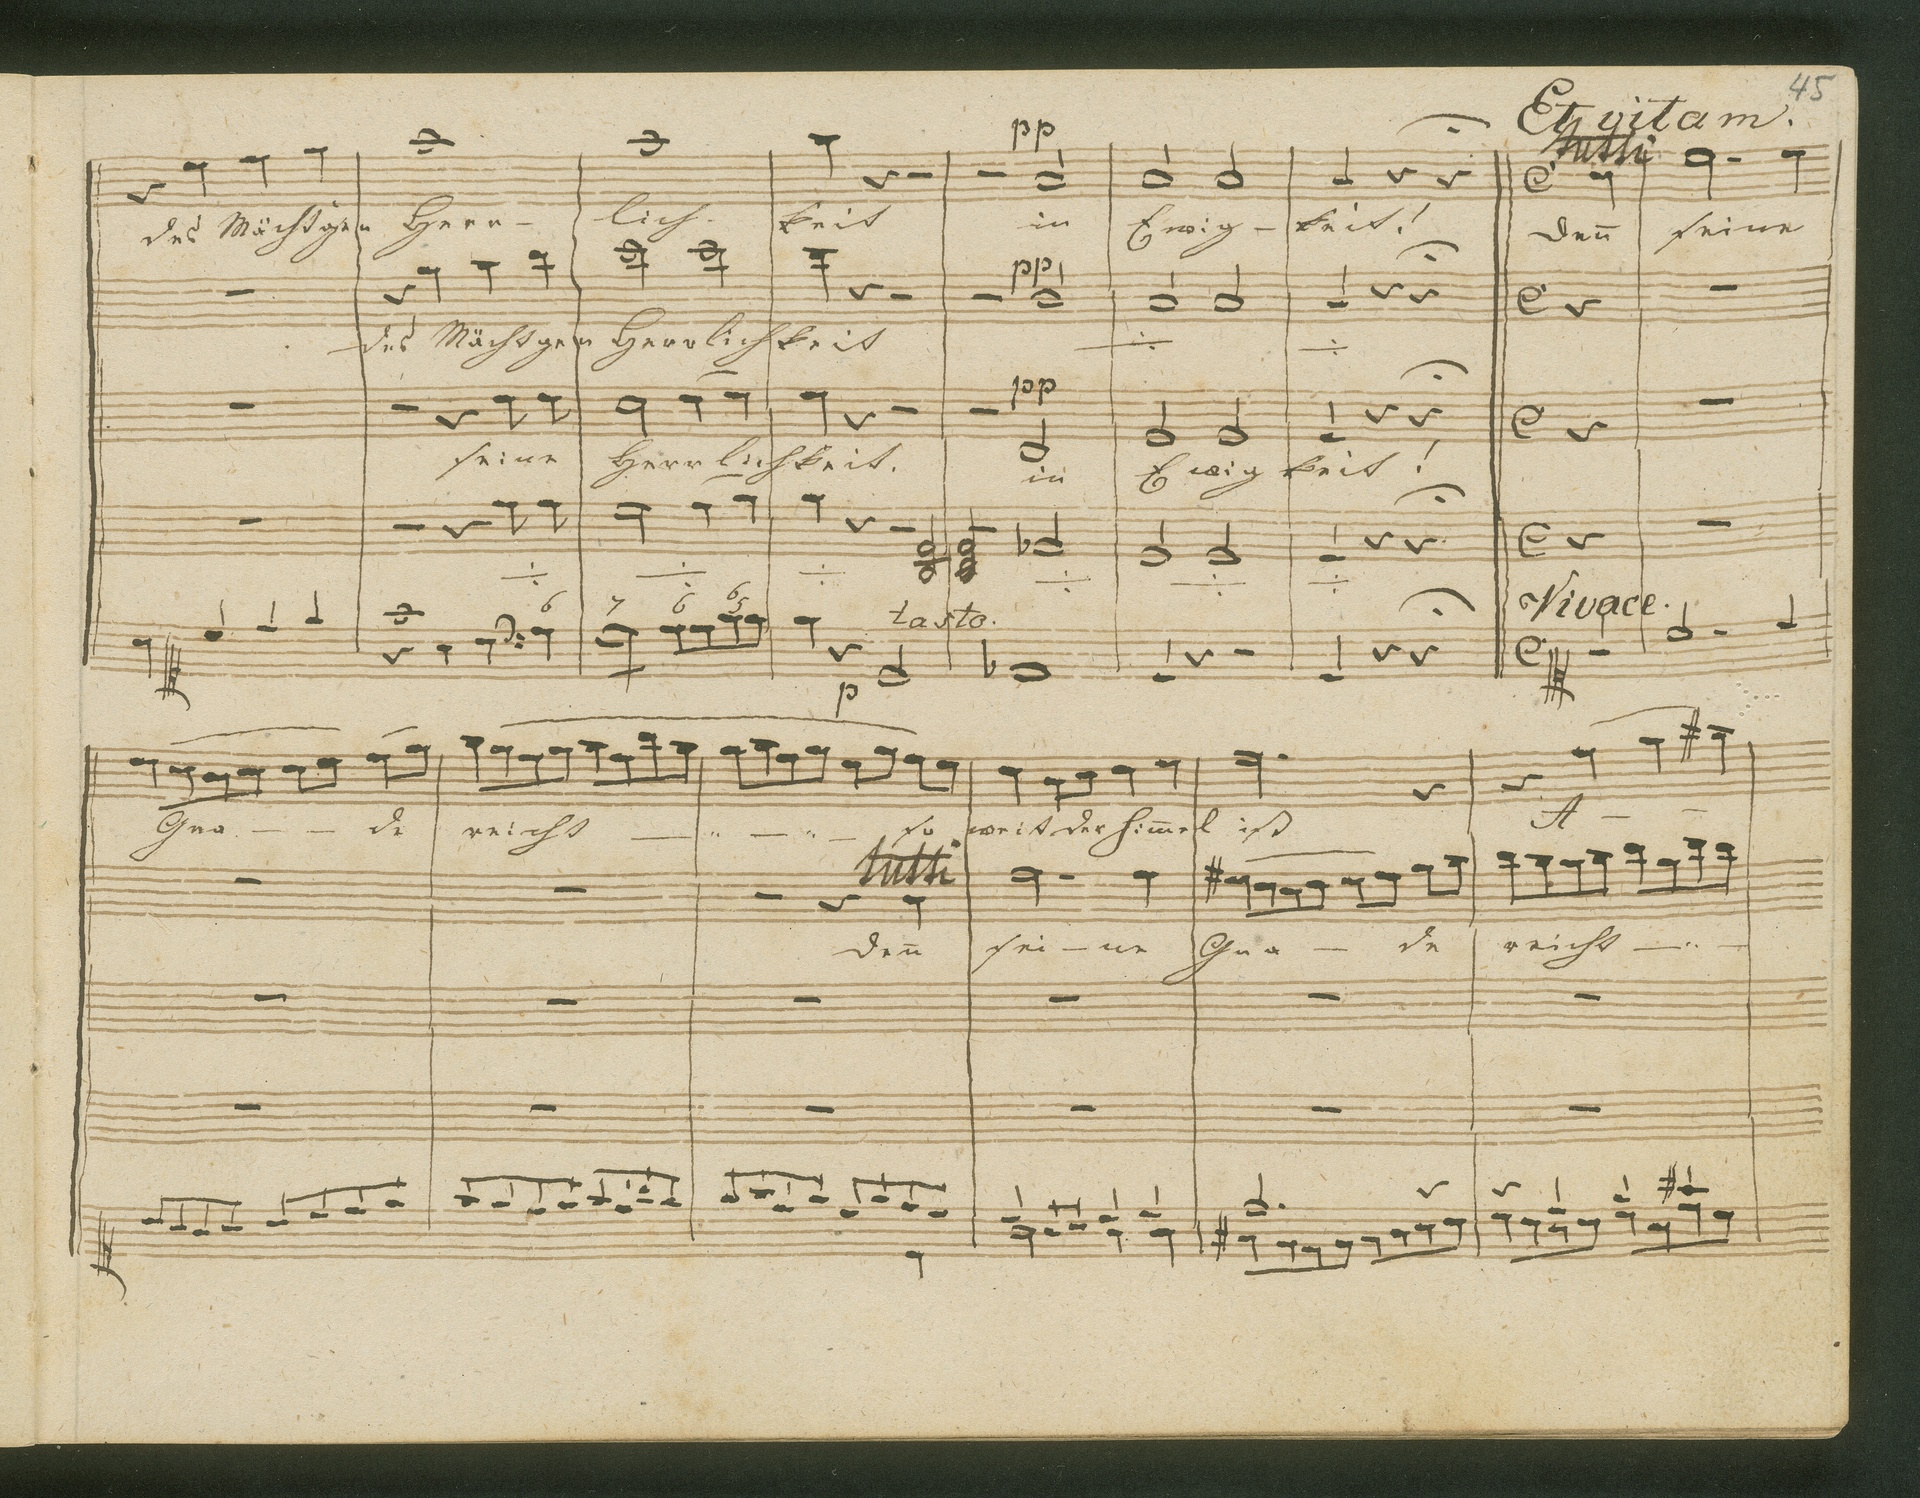 45
Et vitam.
pp
tutti
des Mächtgen Herr- lich- keit in Ewig- keit! Denn̄ seine
pp
des Mächtgen Herrlichkeit
pp
seine Herrlichkeit. in Ewigkeit!
6 7 6 65 tasto. Vivace.
p
Gna - - de reicht - - so weit der Him̄el ist A - -
tutti
Denn̄ sei-ne Gna - de reicht - -